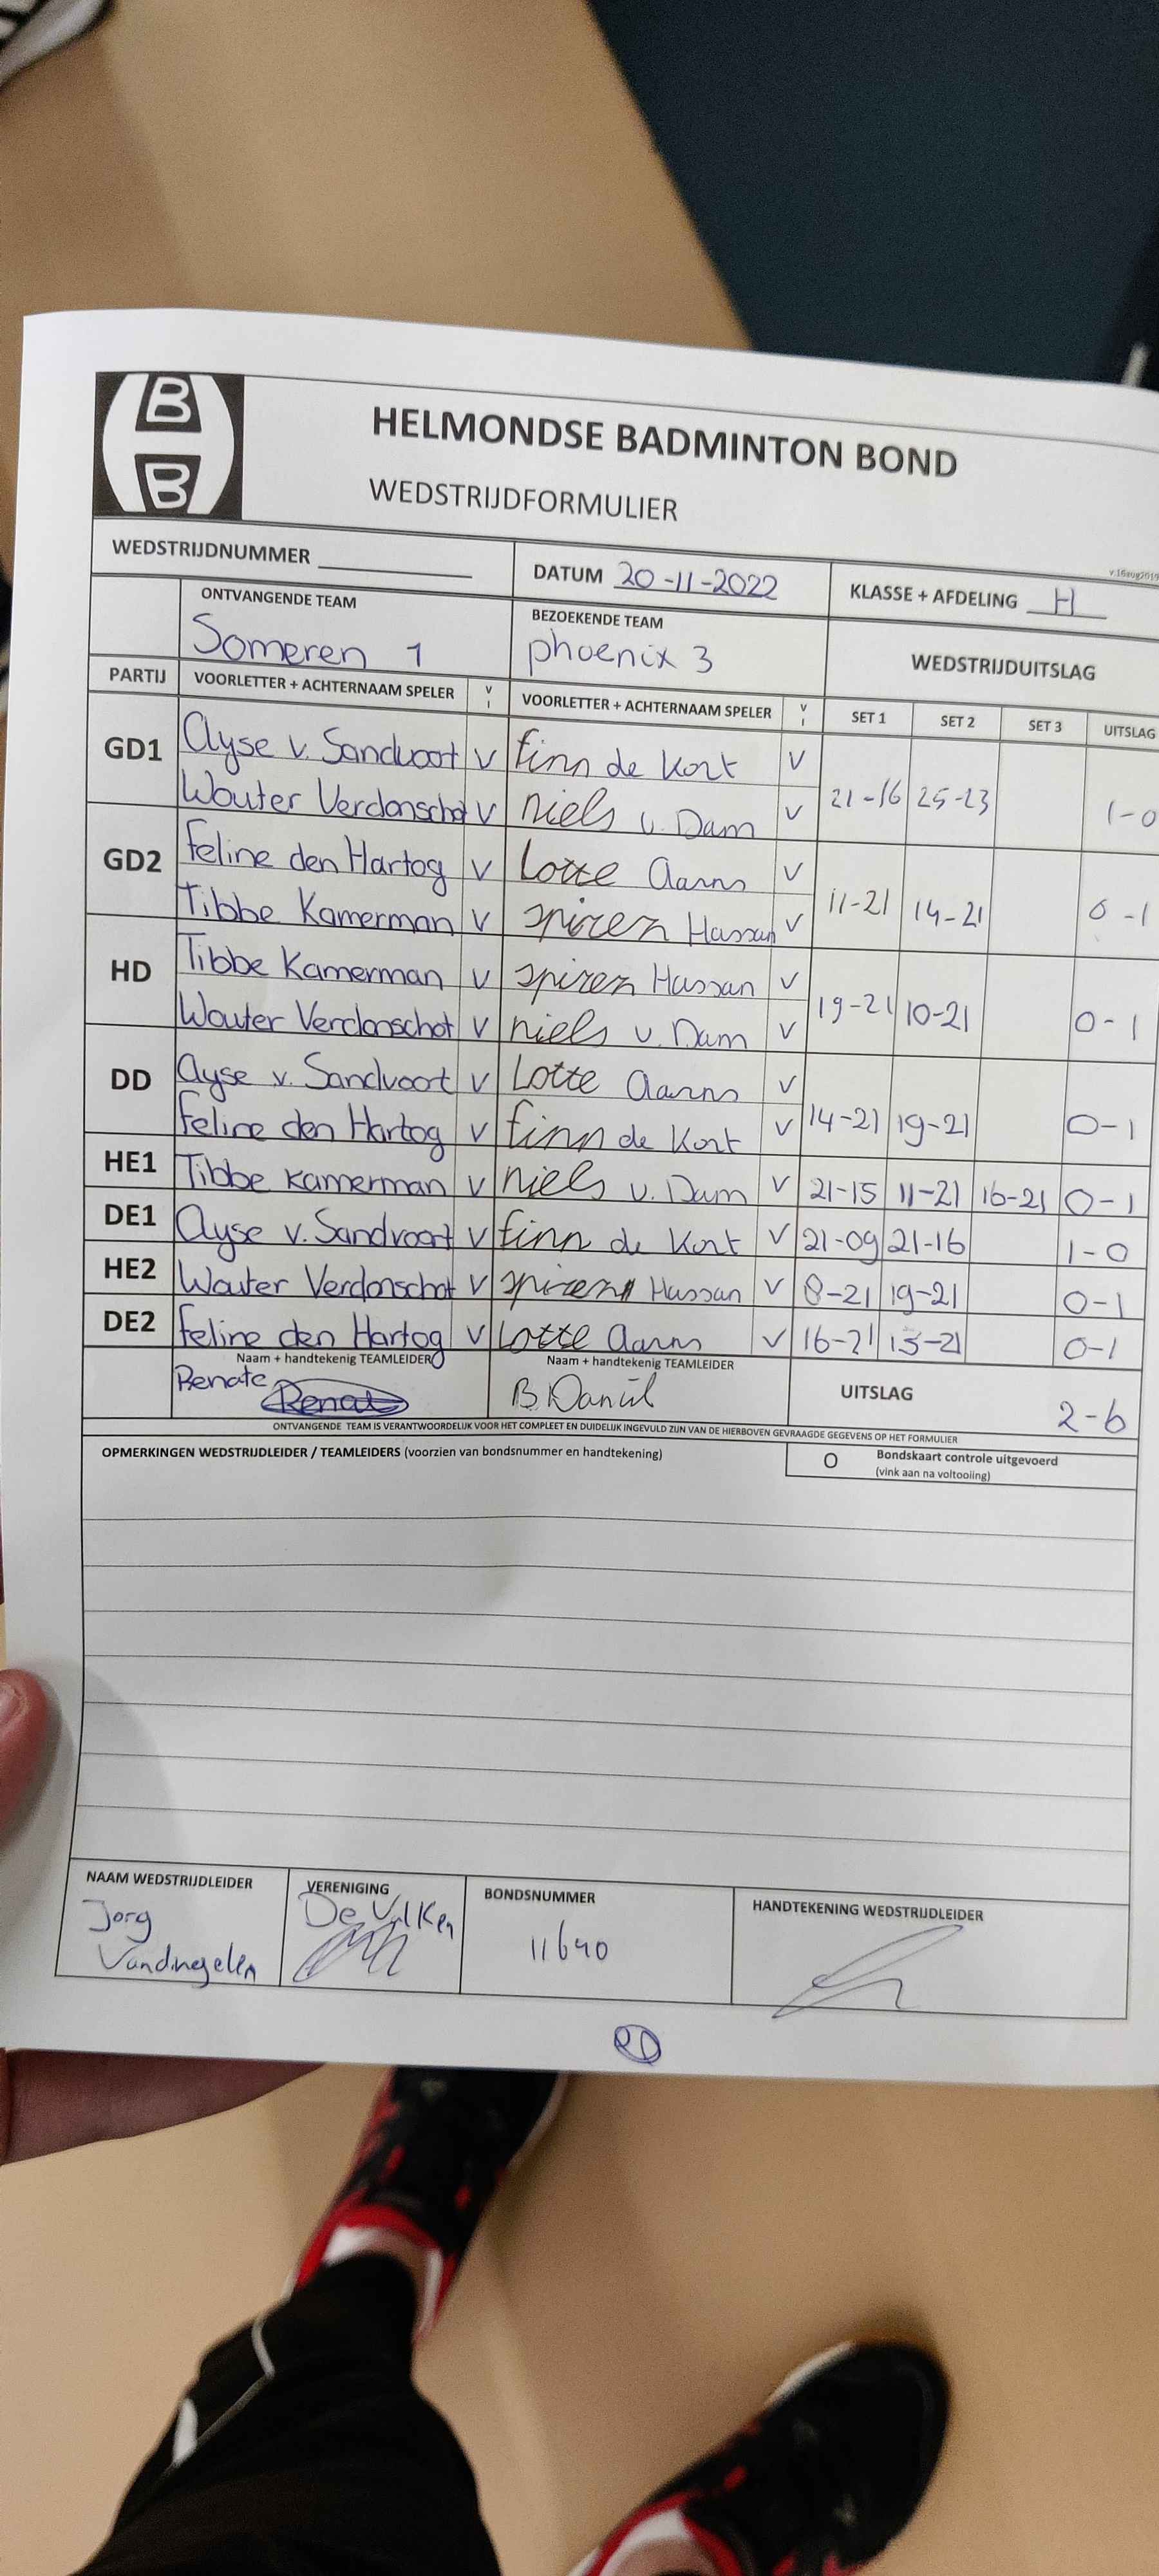 B
B
HELMONDSE BADMINTON BOND
WEDSTRIJDFORMULIER
v.16aug2019
WEDSTRIJDNUMMER DATUM 20-11-2022 KLASSE + AFDELING H
ONTVANGENDE TEAM BEZOEKENDE TEAM WEDSTRIJDUITSLAG
Someren 1 phoenix 3
PARTIJ VOORLETTER + ACHTERNAAM SPELER V I VOORLETTER + ACHTERNAAM SPELER V I SET 1 SET 2 SET 3 UITSLAG
GD1 Ayse v. Sandvoort V Finn de Kort V 21-16 25-23 1-0
Wouter Verdonschot V niels v. Dam V
GD2 Feline den Hartog V Lotte Aarns V 11-21 14-21 0-1
Tibbe Kamerman V spiren Hassan V
HD Tibbe Kamerman V spiren Hassan V 19-21 10-21 0-1
Wouter Verdonschot V niels v. Dam V
DD Ayse v. Sandvoort V Lotte Aarns V 14-21 19-21 0-1
Feline den Hartog V Finn de Kort V
HE1 Tibbe Kamerman V niels v. Dam V 21-15 11-21 16-21 0-1
DE1 Ayse v. Sandvoort V Finn de Kort V 21-09 21-16 1-0
HE2 Wouter Verdonschot V spiren Hassan V 8-21 19-21 0-1
DE2 Feline den Hartog V Lotte Aarns V 16-21 15-21 0-1
Naam + handtekenig TEAMLEIDER Naam + handtekenig TEAMLEIDER UITSLAG 2-6
Renate Renate B. Daniël
ONTVANGENDE TEAM IS VERANTWOORDELIJK VOOR HET COMPLEET EN DUIDELIJK INGEVULD ZIJN VAN DE HIERBOVEN GEVRAAGDE GEGEVENS OP HET FORMULIER
OPMERKINGEN WEDSTRIJDLEIDER / TEAMLEIDERS (voorzien van bondsnummer en handtekening) O Bondskaart controle uitgevoerd
(vink aan na voltooiing)
NAAM WEDSTRIJDLEIDER VERENIGING BONDSNUMMER HANDTEKENING WEDSTRIJDLEIDER
Jorg De Vilken 11640